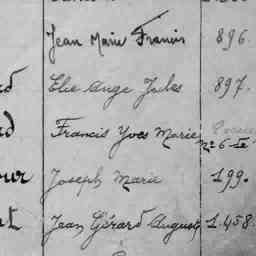 Jean Marie Francis 896.
Elie Ange Jules 897.
Francis Yves Marie
nº 6 Le
our Joseph Marie 199.
t Jean Gérard Auguste 1.458.